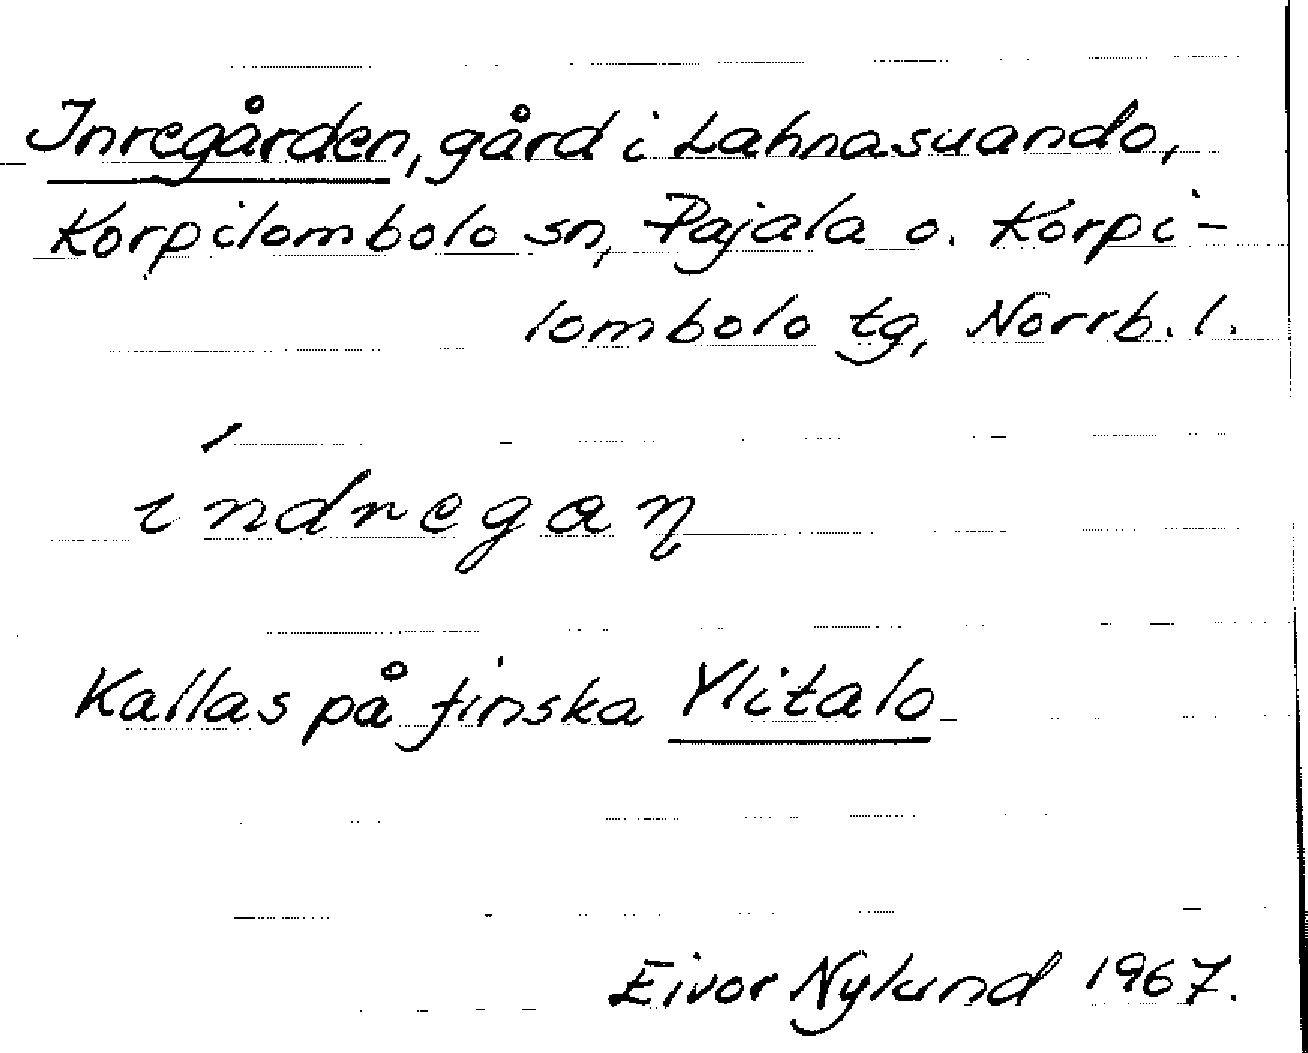 Inregården, gård i Lahnasuando,
Korpilombolo sn, Pajala o. Korpi-
lombolo tg, Norrb. l.
índregaɳ
Kallas på finska Ylitalo
Eivor Nylund 1967.